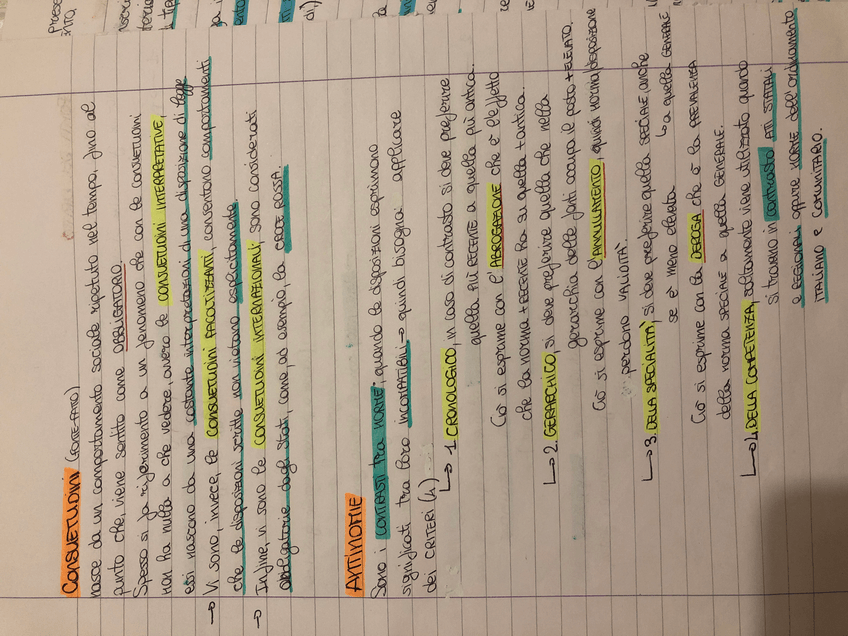 CONSUETUDINI (FONTE-FATTO)
nasce da un comportamento sociale ripetuto nel tempo, fino al
punto che, viene sentito come OBBLIGATORIO.
Spesso si fa riferimento a un fenomeno che con le consuetudini
non ha nulla a che vedere, ovvero le CONSUETUDINI INTERPRETATIVE,
essi nascono da una costante interpretazioni di una disposizione di legge
→ Vi sono, invece, le CONSUETUDINI FACOLTIZZANTI, consentono comportamenti
che le disposizioni scritte non vietano esplicitamente.
→ Infine, vi sono le CONSUETUDINI INTERNAZIONALI, sono considerati
obbligatorie dagli Stati, come, ad esempio, la CROCE ROSSA.
ANTINOMIE
Sono i CONTRASTI tra NORME, quando le disposizioni esprimono
significati tra loro INCOMPATIBILI → quindi bisogna applicare
dei CRITERI (4)
↳ 1. CRONOLOGICO, in caso di contrasto si deve preferire
quella PIÙ RECENTE a quella più antica.
Ciò si esprime con l'ABROGAZIONE che è l'effetto
che la norma + RECENTE ha su quella + antica.
↳ 2. GERARCHICO, si deve preferire quella che nella
gerarchia delle fonti occupa il posto + ELEVATO.
Ciò si esprime con l'ANNULLAMENTO, quindi norma/disposizione
perdono VALIDITÀ
↳ 3. DELLA SPECIALITÀ, si deve preferire quella SPECIALE, anche
se è meno elevata ↳ a quella GENERALE
Ciò si esprime con la DEROGA che è la PREVALENZA
della norma SPECIALE a quella GENERALE.
↳ 4. DELLA COMPETENZA, solitamente viene utilizzato quando
si trovano in contrasto ATTI STATALI
e REGIONALI oppure NORME dell'ordinamento
ITALIANO e COMUNITARIO.